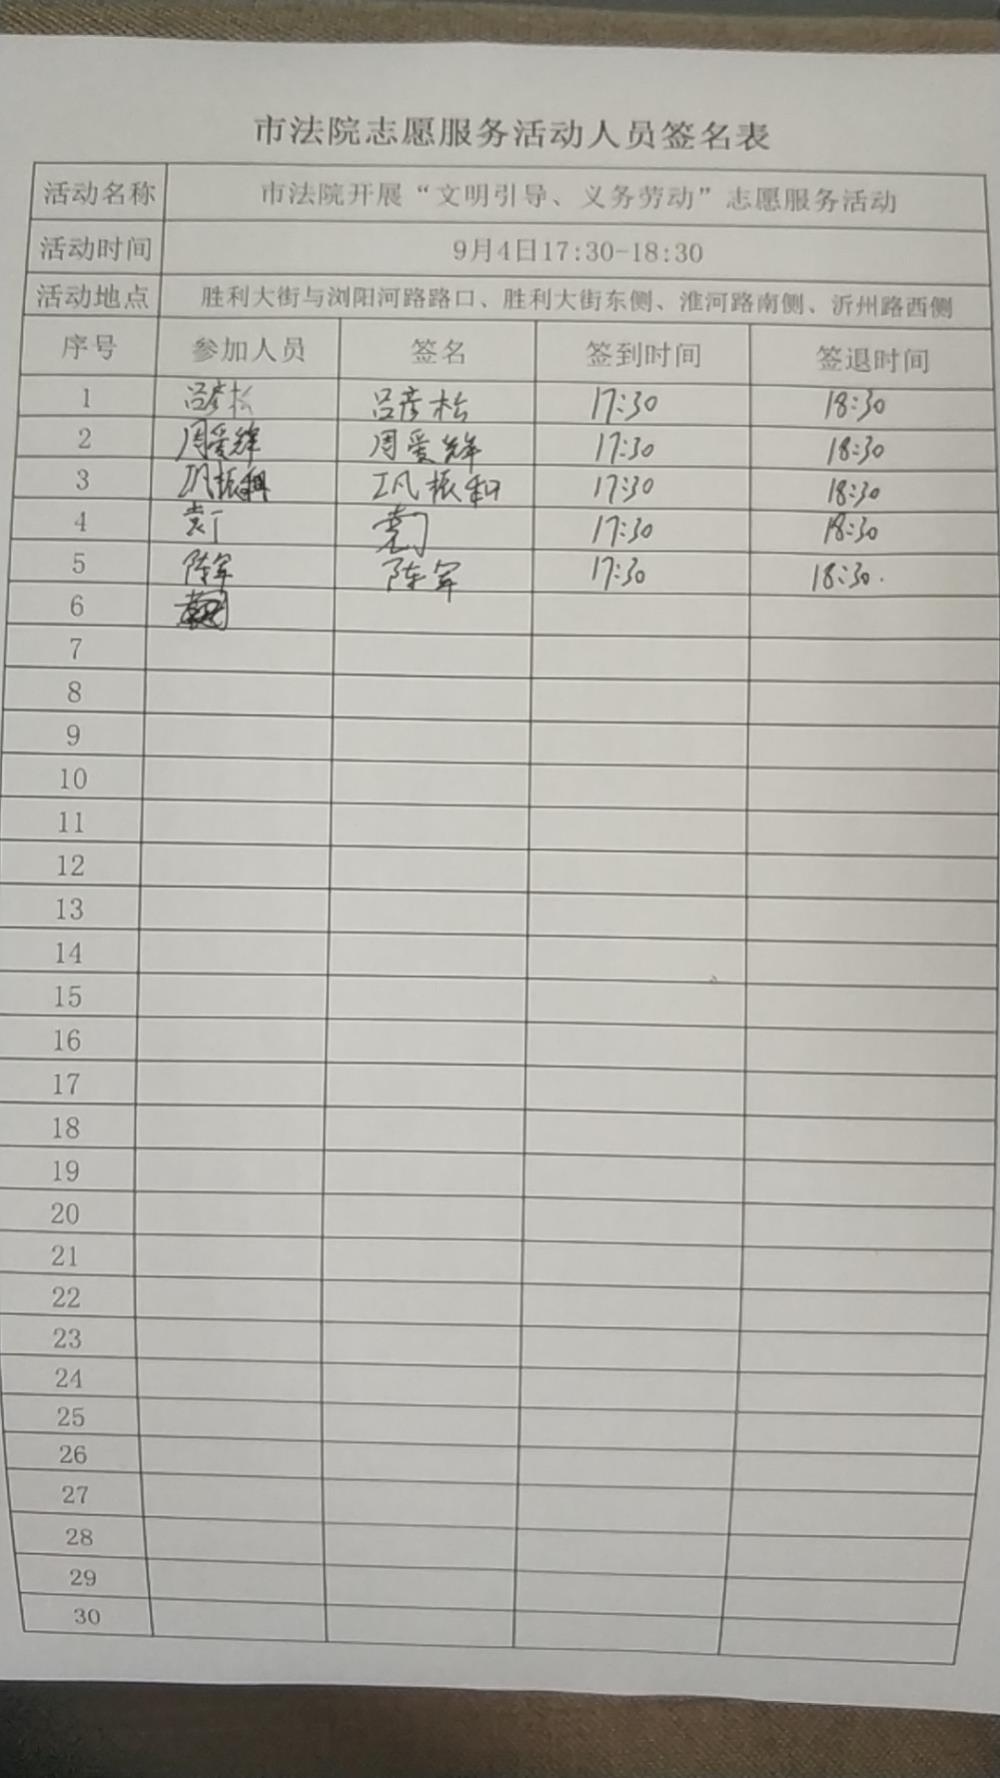 市法院志愿服务活动人员签名表
活动名称 市法院开展“文明引导、义务劳动”志愿服务活动
活动时间 9月4日17:30-18:30
活动地点 胜利大街与浏阳河路路口、胜利大街东侧、淮河路南侧、沂州路西侧
序号 参加人员 签名 签到时间 签退时间
1 吕彦松 吕彦松 17:30 18:30
2 周爱辉 周爱辉 17:30 18:30
3 巩振和 17:30 18:30
4 袁丁 17:30 18:30
5 陈军 陈军 17:30 18:30.
6
7
8
9
10
11
12
13
14
15
16
17
18
19
20
21
22
23
24
25
26
27
28
29
30